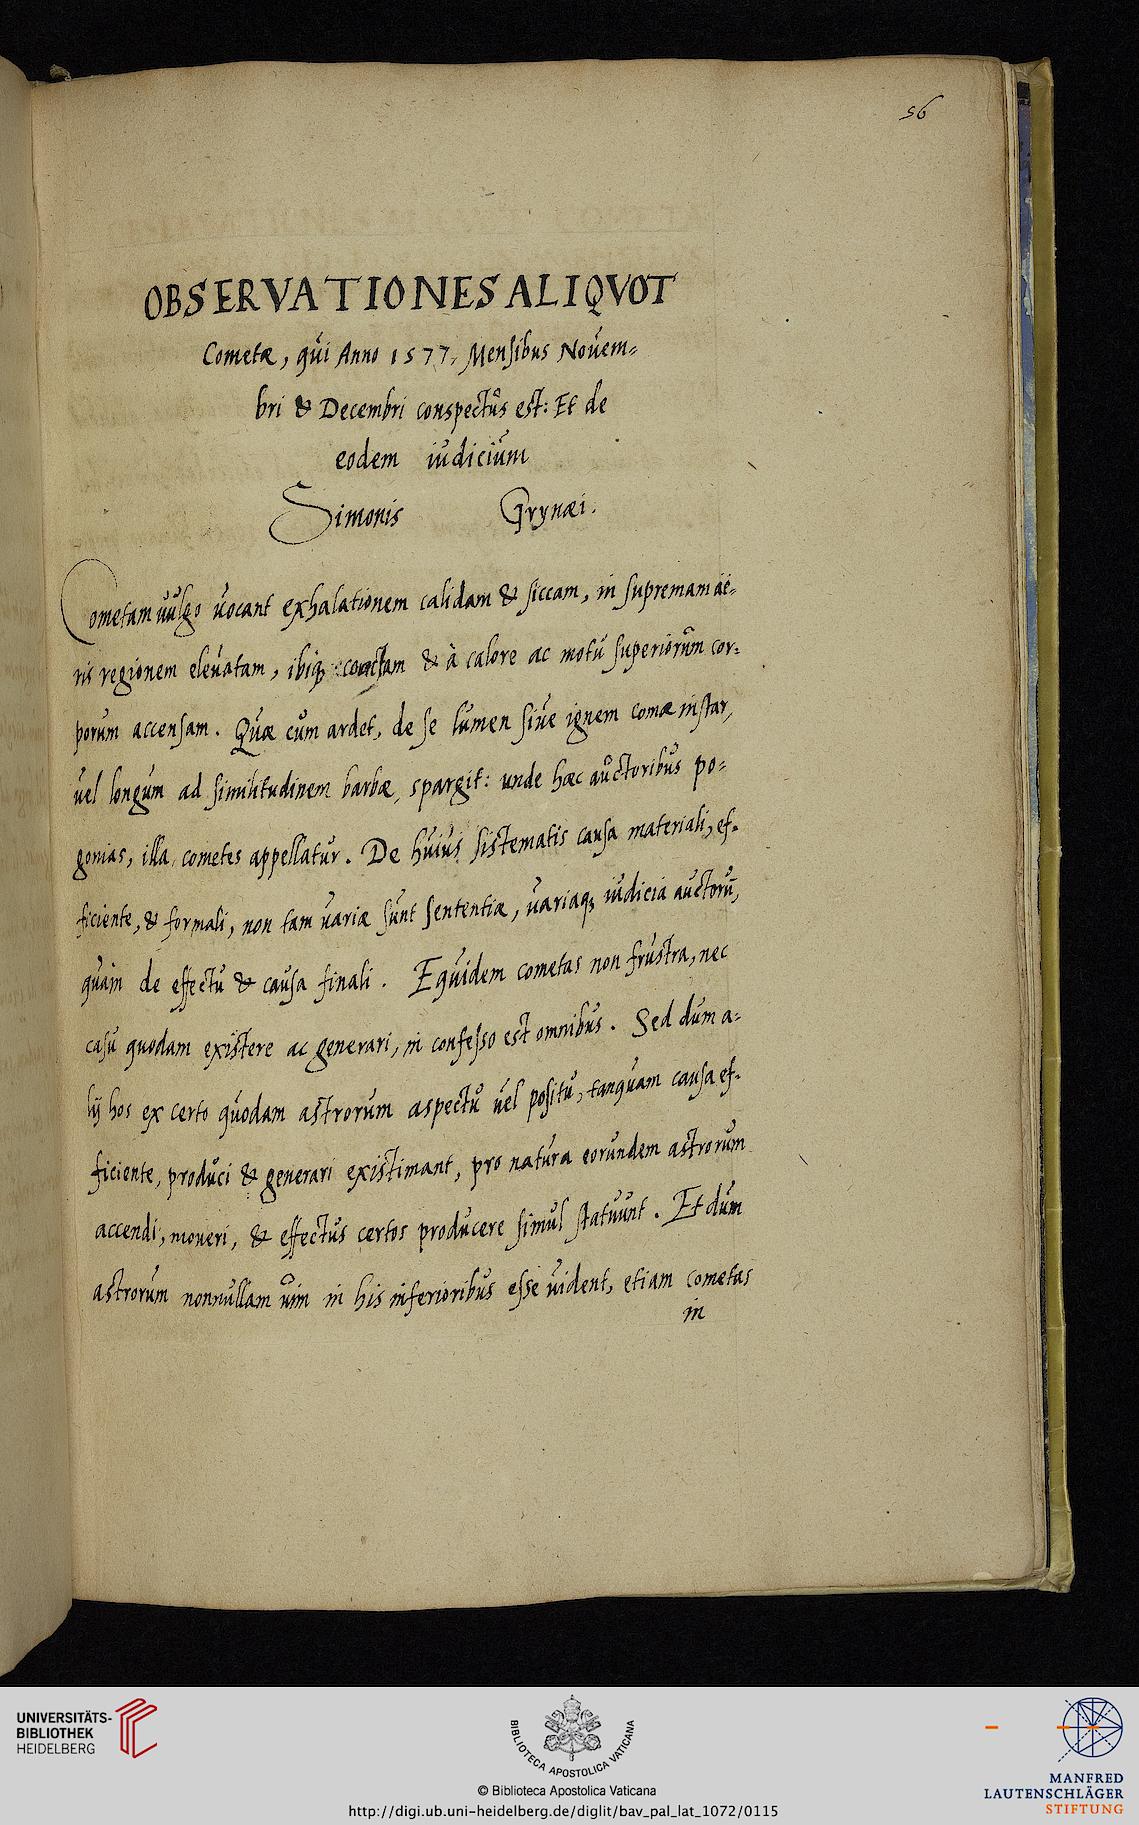 56
OBSERVATIONES ALIQVOT
Cometæ, qui Anno 1577, Mensibus Novem-
bri & Decembri conspectus est: Et de
eodem iudicium
Simonis Grynæi.
Cometam vulgo vocant exhalationem calidam & siccam, in supremam aë-
ris regionem elevatam, ibiq; & à calore ac motu superiorum cor-
porum accensam. Quæ cum ardet, de se lumen sive ignem comæ instar,
vel longum ad similitudinem barbæ, spargit: unde hæc auctoribus po-
gonias, illa, cometes appellatur. De huius sistematis causa materiali, ef-
ficiente, & formali, non tam variæ sunt sententiæ, variaq; iudicia auctorū,
quàm de effectu & causa finali. Equidem cometas non frustra, nec
casu quodam existere ac generari, in confesso est omnibus. Sed dum a-
lij hos ex certo quodam astrorum aspectu vel positu, tanquam causa ef-
ficiente, produci & generari existimant, pro natura eorundem astrorum
accendi, moveri, & effectus certos producere simul statuunt. Et dum
astrorum nonnullam vim in his inferioribus esse vident, etiam cometas
in
UNIVERSITÄTS-
BIBLIOTHEK
HEIDELBERG
BIBLIOTECA APOSTOLICA VATICANA
© Biblioteca Apostolica Vaticana
http://digi.ub.uni-heidelberg.de/diglit/bav_pal_lat_1072/0115
MANFRED
LAUTENSCHLÄGER
STIFTUNG